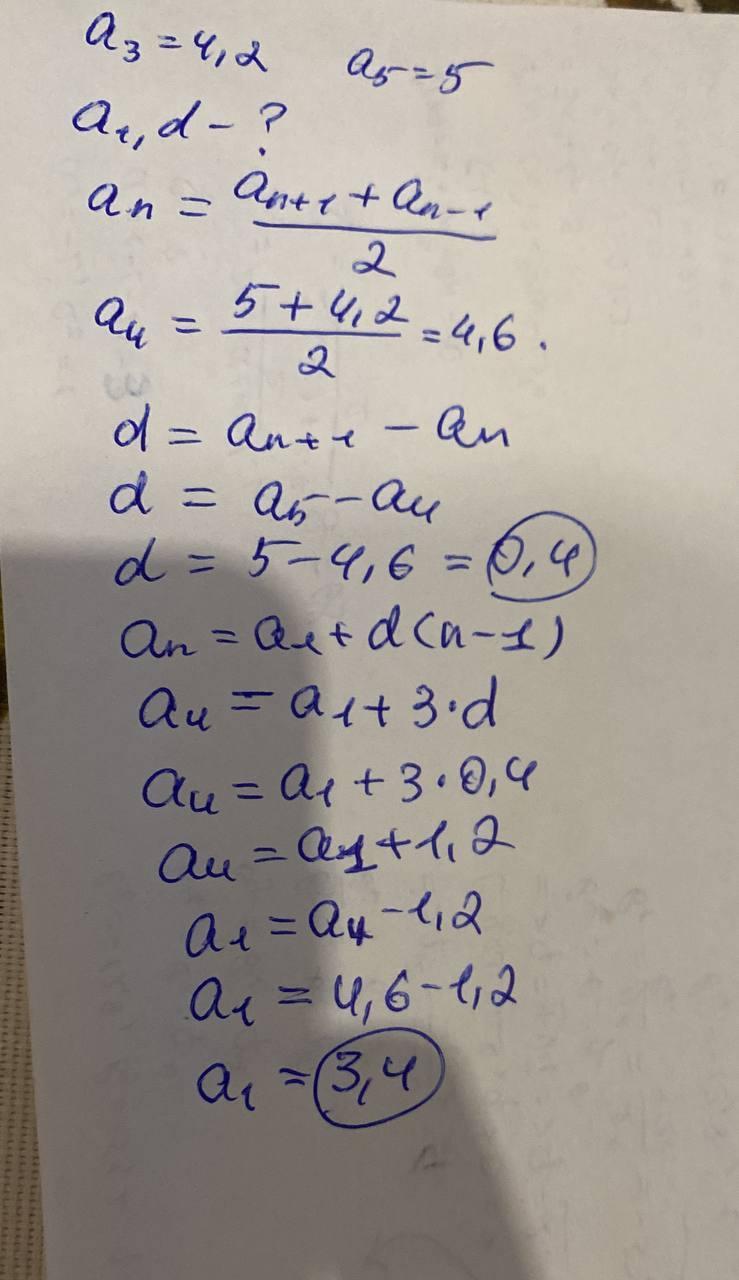 a₃ = 4,2 a₅ = 5
a₁, d – ?
aₙ = (aₙ₊₁ + aₙ₋₁) / 2
a₄ = (5 + 4,2) / 2 = 4,6 .
d = aₙ₊₁ – aₙ
d = a₅ – a₄
d = 5 – 4,6 = 0,4
aₙ = a₁ + d(n–1)
a₄ = a₁ + 3·d
a₄ = a₁ + 3·0,4
a₄ = a₁ + 1,2
a₁ = a₄ – 1,2
a₁ = 4,6 – 1,2
a₁ = 3,4